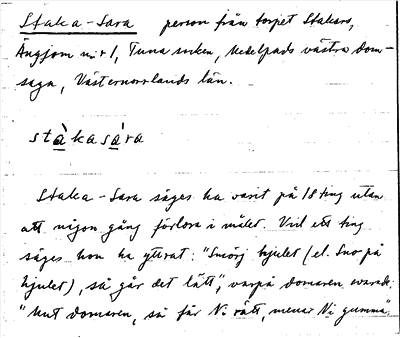 Staka-Sara person från torpet Stakars,
Ängjom nr 1, Tuna socken, Medelpads västra dom-
saga, Västernorrlands län.
stàkasára
Staka-Sara säges ha varit på 18 ting utan
att någon gång förlora i målet. Vid ett ting
säges hon ha yttrat: "Smörj hjulet (el. Sno på
hjulet), så går det lätt", varpå domaren svarade:
"Mut domaren, så får Ni rätt, menar Ni gumma".